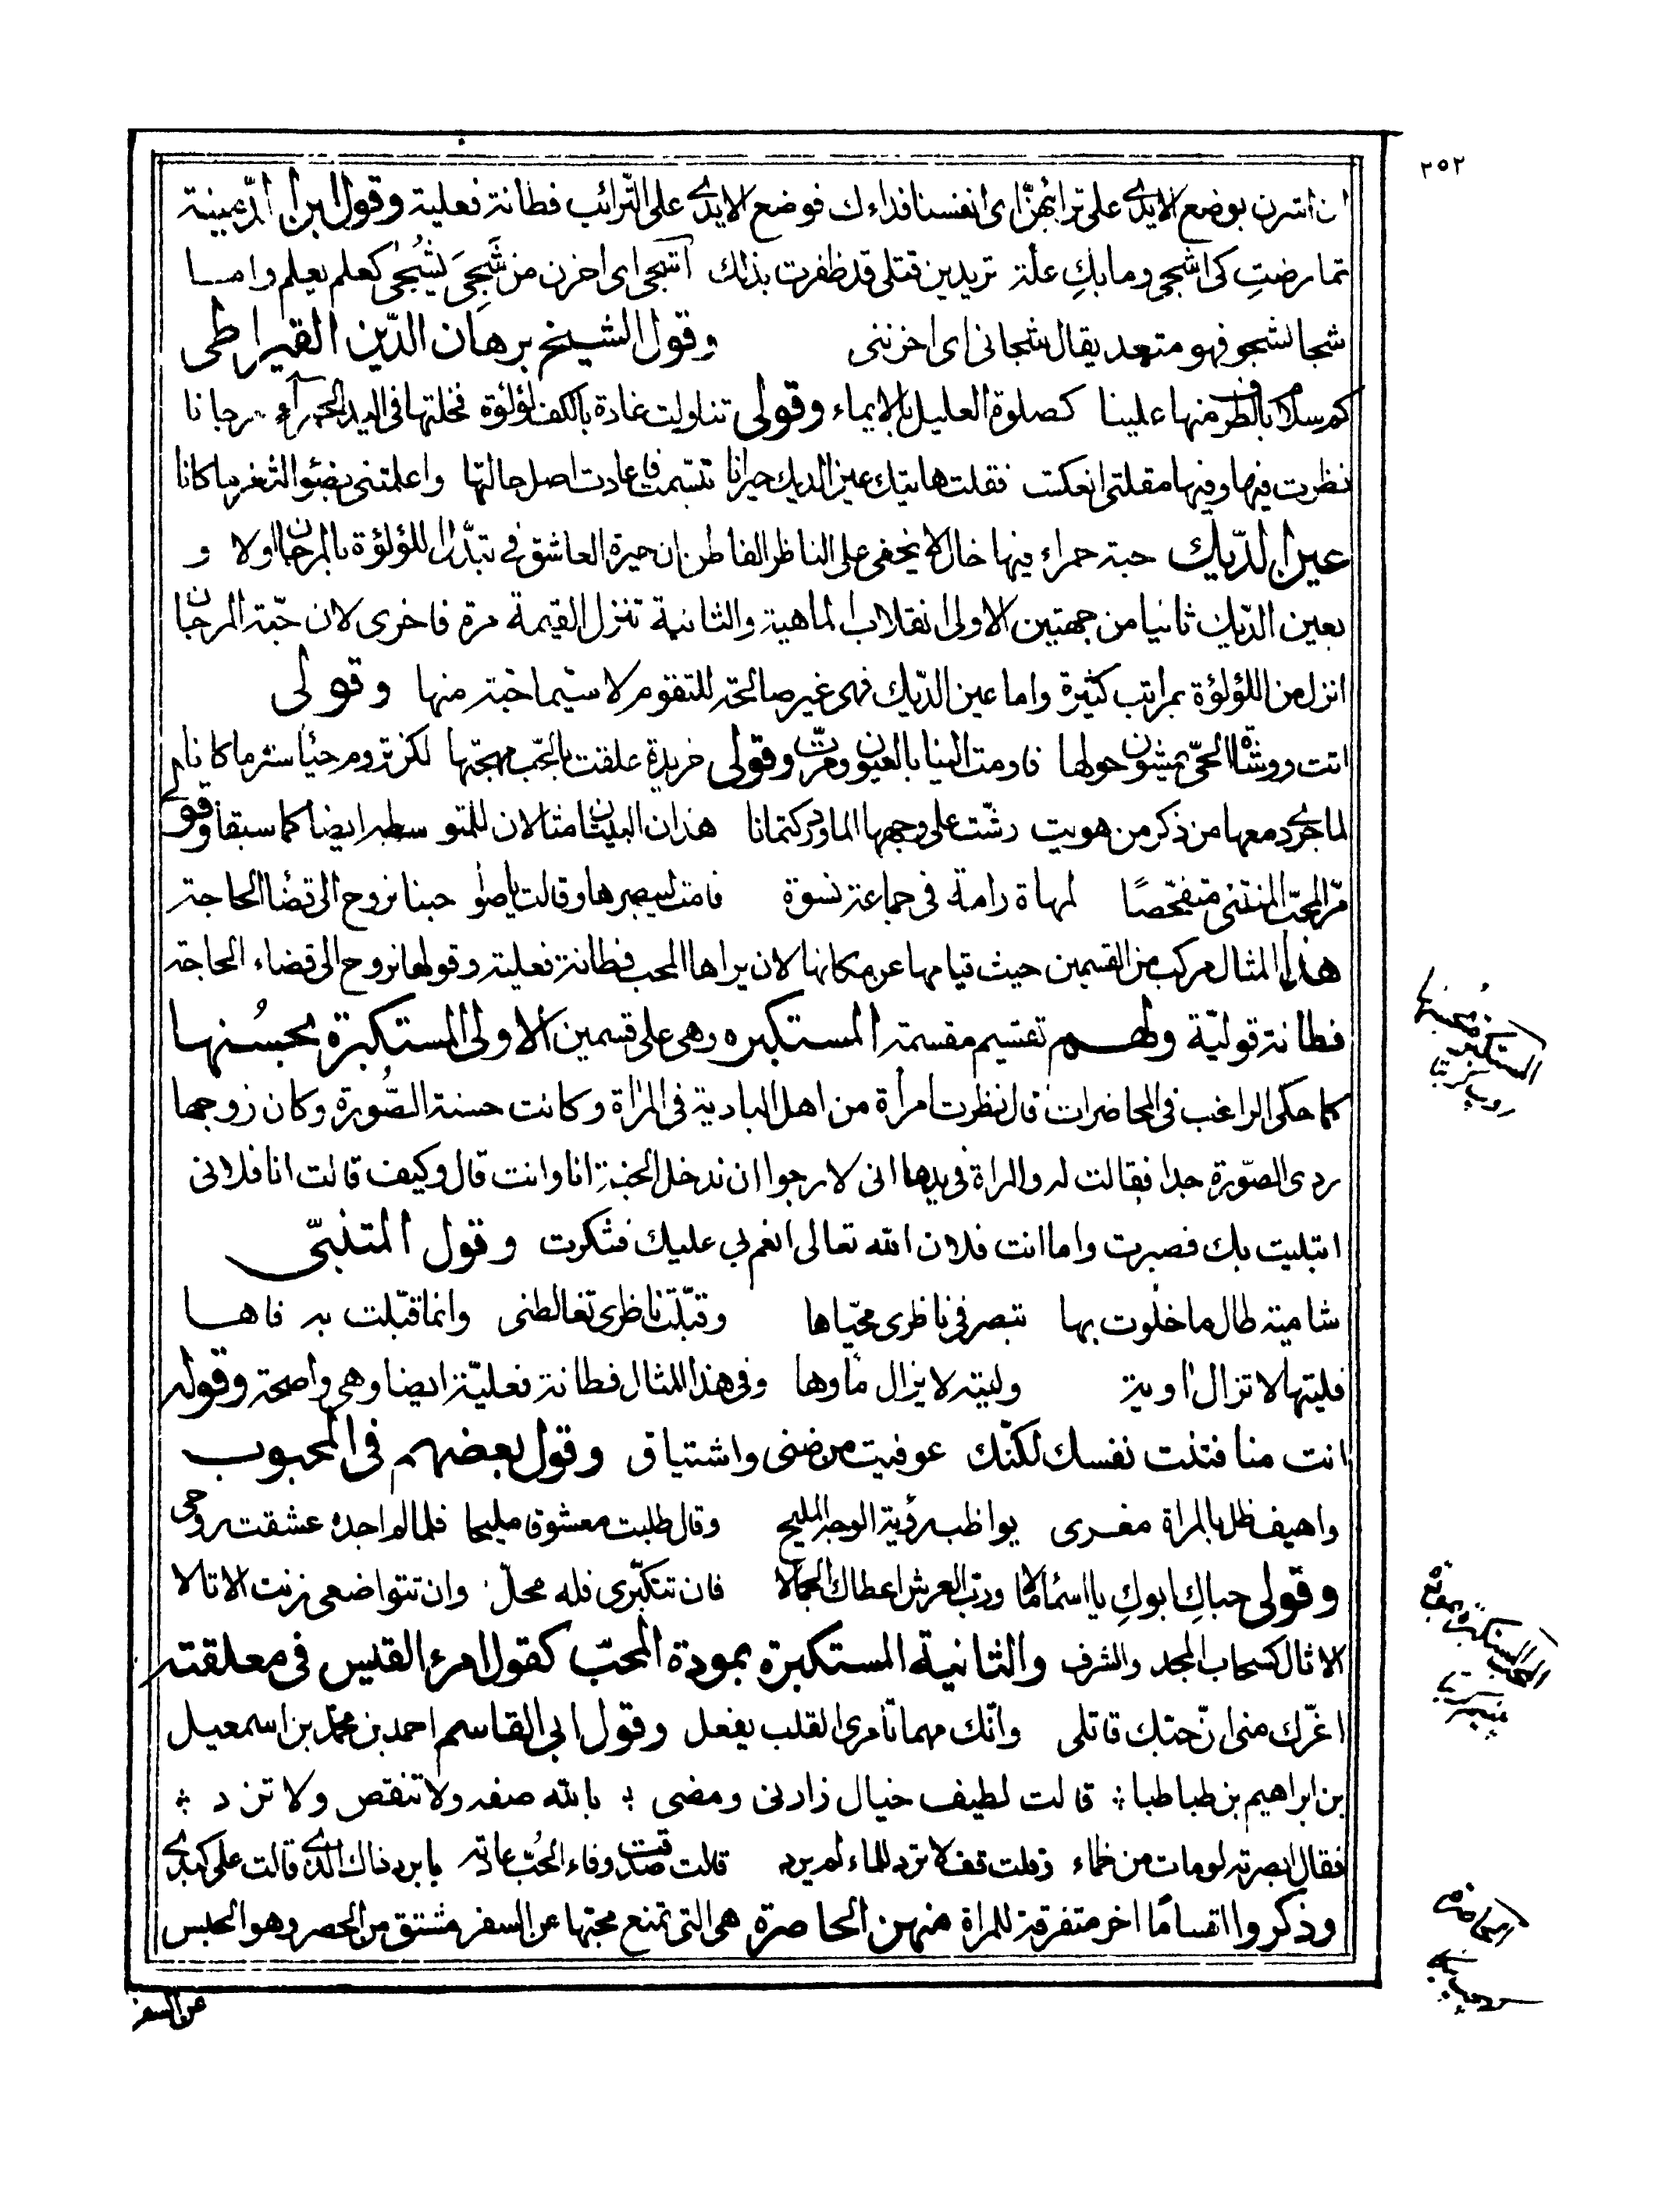 ٢٥٢
ان اشرن بوضع الايدى على ترائبهنّ اى انفسنا فداءك فوضع الايدى على التّرائب فطانة فعلية وقول ابن الدّمينة
تمارضتِ كى اشجى ومابكِ علّة تريدين قتلى قد ظفرت بذلك اشجى اى احزن من شَجِىَ يشُجٰى كعلم يعلم واما
شجا يشجو فهو متعد يقال شجانى اى احزننى وقول الشيخ برهان الدّين القيراطى
كم سلام بالطرف منها علينا كصلوة العليل بالايماء وقولى تناولت غادة بالكف لؤلؤة فخلتها فى اليد الحمراء مرجانا
نظرت فيها وفيها مقلتى انعكست فقلت هاتيك عين الديك حيرانا تبسّمت فاعادت اصل حالتها واعلمتنى بضوء الثغر ما كانا
عين الدّيك حبة حمراء فيها خال لا يخفى على الناظر الفاطن ان حيرة العاشق فى تبدّل اللؤلؤة بالمرجان اولا و
بعين الدّيك ثانيا من جهتين الاولى انقلاب الماهية والثانية تنزل القيمة مرة فاخرى لان حبّة المرجان
انزل من اللؤلؤة بمراتب كثيرة واما عين الدّيك فهى غير صالحة للتقوم لا سيّما حبّة منها وقولى
اتت ووشاة الحىّ يمشون حولها فاومت الينا بالعيون ومرّت وقولى خريدة علقت بالحّب مهجتها لكن تروم حيأ ستر ما كانا
لما جرى دمعها من ذكر من هويت رشّت على وجهها الماورد كتمانا هذان البيتان مثالان للمتوسطه ايضا كما سبقا وقولى
مّر المحبّ المنتنى متفحّصًا لمهاة رامة فى جماعة نسوة فامت ليبصرها وقالت ياصوا حبنا نروح الى قضأ الحاجة
هذا المثال مركب من القسمين حيث قيامها عن مكانها لان يراها المحب فطانة فعلية وقولها نروح الى قضاء الحاجة
فطانة قوليّة ولهم تقسيم مقسمة المستكبره وهى على قسمين الاولى المستكبرة بحسُنها
كما حكى الراغب فى المحاضرات قال نظرت امرأة من اهل البادية فى المرأة وكانت حسنة الصُّورة وكان زوجها
ردى الصّورة جدا فقالت له والمراة فى يدها انى لارجوا ان ندخل الجنة انا وانت قال وكيف قالت انا فلانى
ابتليت بك فصبرت واما انت فلان الله تعالى انعم بى عليك فشكرت وقول المتنبّى
شامية طال ما خلوت بها تبصر فى ناظرى محيّاها وقبّلت ناظرى تغالطنى وانما قبّلت به فاها
فليتها لا تزال اوية وليته لا يزال مأوها وفى هذا المثال فطانة فعليّة ايضا وهى واضحة وقوله
انت منا فتنت نفسك لكنّك عوفيت من ضنى واشتياق وقول بعضهم فى المحبوب
واهيف ظل بالمراة مغرى يواظب رؤية الوجه المليح وقال طلبت معشوقا مليحا فلما لم اجده عشقت روحى
وقولى حباكِ ابوكِ يا اسمأ مالا ورب العرش اعطاك الجمالا فان تتكبّرى فله محلّ وان تتواضعى زنت الاثالا
الاثال كسحاب المجد والشرف والثانية المستكبرة بمودة المحبّ كقول امرء القيس فى معلقته
اغرّك منى انّ حبّك قاتلى وانّك مهما تأمرى القلب يفعل وقول ابى القاسم احمد بن محمّد بن اسمعيل
بن ابراهيم بن طباطبا قالت لطيف خيال زارنى ومضى بالله صفه ولا تنقص ولا تزد
فقال ابصرته لومات من ظماء وقلت قف لا ترد للماء لم يرد قالت صدقت وفاء الحُبّ عادته يا برد ذاك الذى قالت على كبدى
وذكروا اقسامًا اخر متفرقة للمراة منهن الحاصرة هى التى تمنع محبّها عن السفر مشتق من الحصر وهو الحبس
عن السفر
المستكبرة بحسنها
المستكبرة بمودة المحب